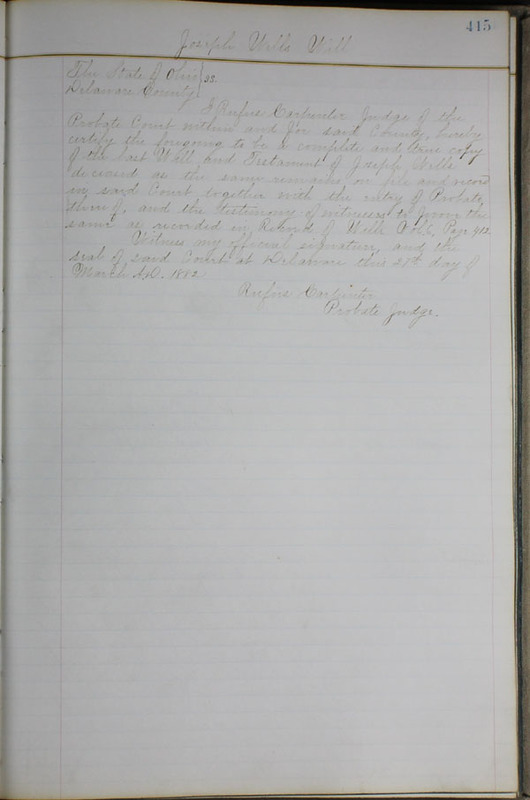 415
Joseph Wells Will
The State of Ohio } ss.
Delaware County
I Rufus Carpenter Judge of the
Probate Court within and for said County, hereby
certify the foregoing to be a complete and true copy
of the last Will and Testament of Joseph Wells
deceased as the same remains on file and record
in said Court together with the entry of Probate
thereof, and the testimony of witnesses to prove the
same as recorded in Records of Wills Vol 6, Page 412.
Witness my official signature, and the
seal of said Court at Delaware this 27th day of
March A.D. 1882
Rufus Carpenter
Probate Judge.